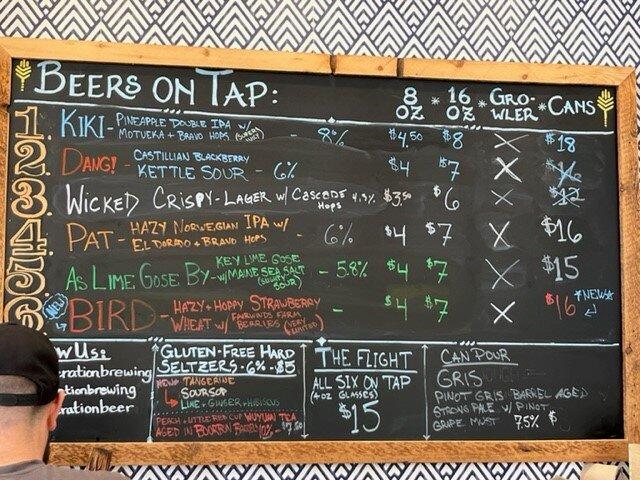 BEERS ON TAP: 8 OZ * 16 OZ * GROWLER * CANS
1. KIKI - PINEAPPLE DOUBLE IPA W/
MOTUEKA + BRAVO HOPS - 8% $4.50 $8 X $18
2. DANG! - CASTILLIAN BLACKBERRY
KETTLE SOUR - 6% $4 $7 X
3. WICKED CRISPY - LAGER W/ CASCADE
HOPS $3.50 $6 X $12
4. PAT - HAZY NORWEGIAN IPA W/
EL DORADO + BRAVO HOPS - 6% $4 $7 X $16
5. AS LIME GOSE BY - KEY LIME GOSE
W/ MAINE SEA SALT - 5.8% $4 $7 X $15
6. NEW BIRD - HAZY + HOPPY STRAWBERRY
WHEAT W/ FAIRWINDS FARM
BERRIES (VERY LIMITED) - $4 $7 X $16 *NEW*
W US:
rationbrewing
rationbrewing
rationbeer
GLUTEN-FREE HARD
SELTZERS - 6% - $5
NEW TANGERINE
SOURSOP
LIME + GINGER + HIBISCUS
PEACH + LITTLE RED CUP WUYUAN TEA
AGED IN BOURBON BARRELS 10% - $7.50
THE FLIGHT
ALL SIX ON TAP
(4 OZ GLASSES)
$15
CAN POUR
GRIS
PINOT GRIS BARREL AGED
STRONG PALE W/ PINOT
GRIPE MUST 7.5% $